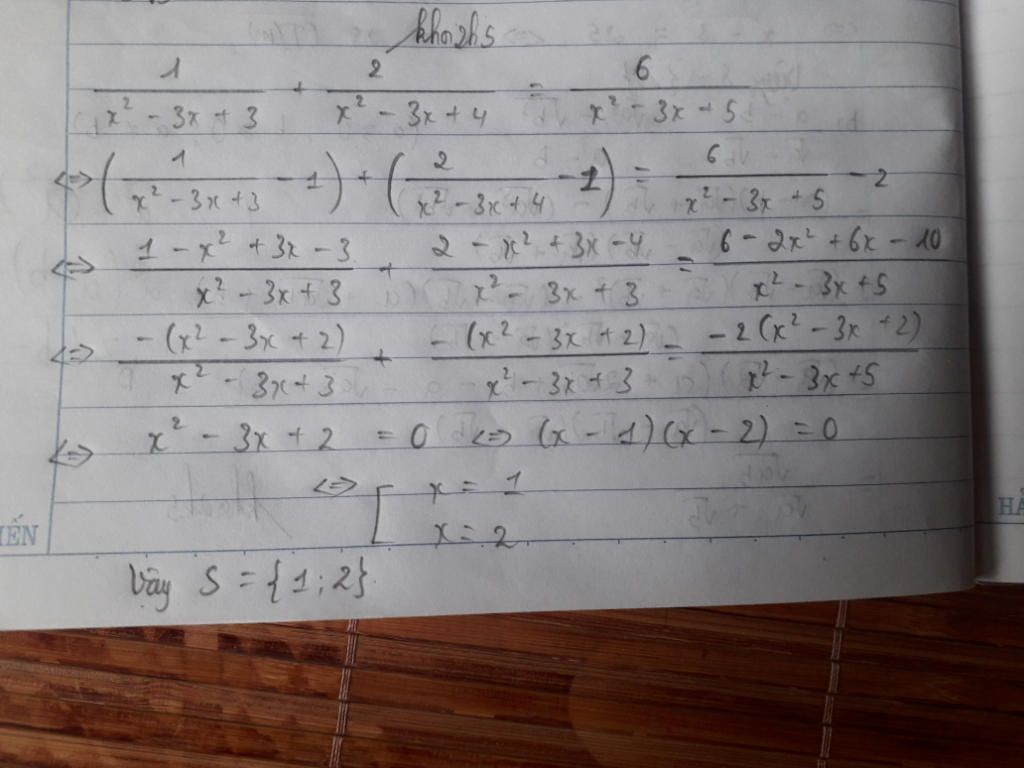 khoi2h5
1/(x² - 3x + 3) + 2/(x² - 3x + 4) = 6/(x² - 3x + 5)
<=> (1/(x² - 3x + 3) - 1) + (2/(x² - 3x + 4) - 1) = 6/(x² - 3x + 5) - 2
<=> (1 - x² + 3x - 3)/(x² - 3x + 3) + (2 - x² + 3x - 4)/(x² - 3x + 3) = (6 - 2x² + 6x - 10)/(x² - 3x + 5)
<=> (-(x² - 3x + 2))/(x² - 3x + 3) + (-(x² - 3x + 2))/(x² - 3x + 3) = (-2(x² - 3x + 2))/(x² - 3x + 5)
<=> x² - 3x + 2 = 0 <=> (x - 1)(x - 2) = 0
<=> [ x = 1
x = 2
Vậy S = {1; 2}